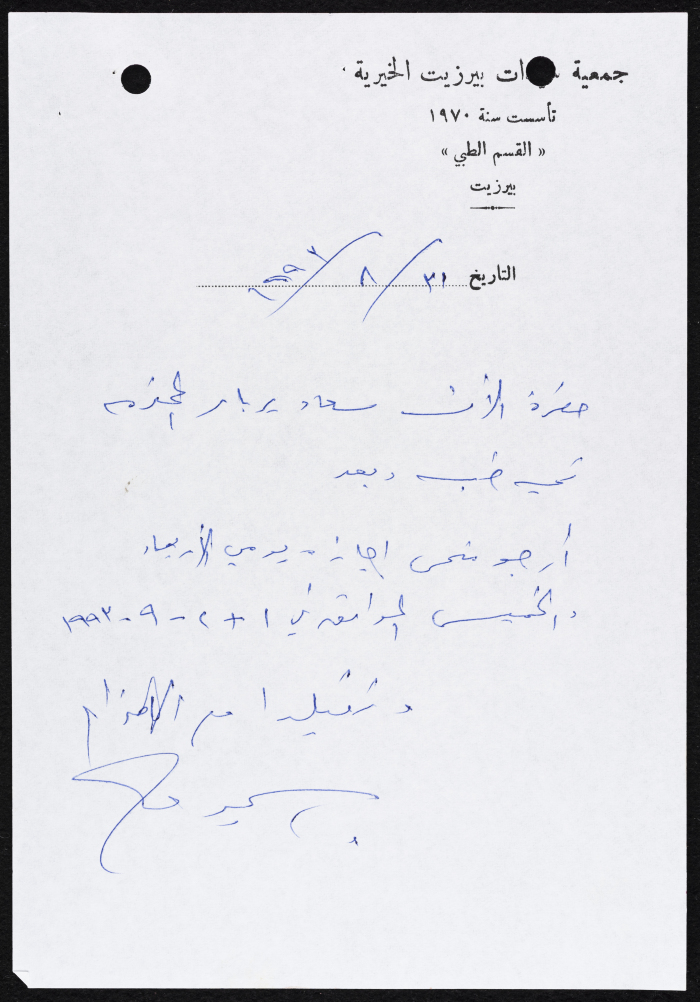 جمعية سيدات بيرزيت الخيرية
تأسست سنة ١٩٧٠
« القسم الطبي »
بيرزيت
التاريخ ٣١ / ٨ / ١٩٩٣
حضرة الآنسة سعاد المحترمة
تحية طيبة وبعد
أرجو منحي اجازة يومي الأربعاء
والخميس الموافق في ١ + ٢ - ٩ - ١٩٩٣
وتفضلوا مع الاحترام